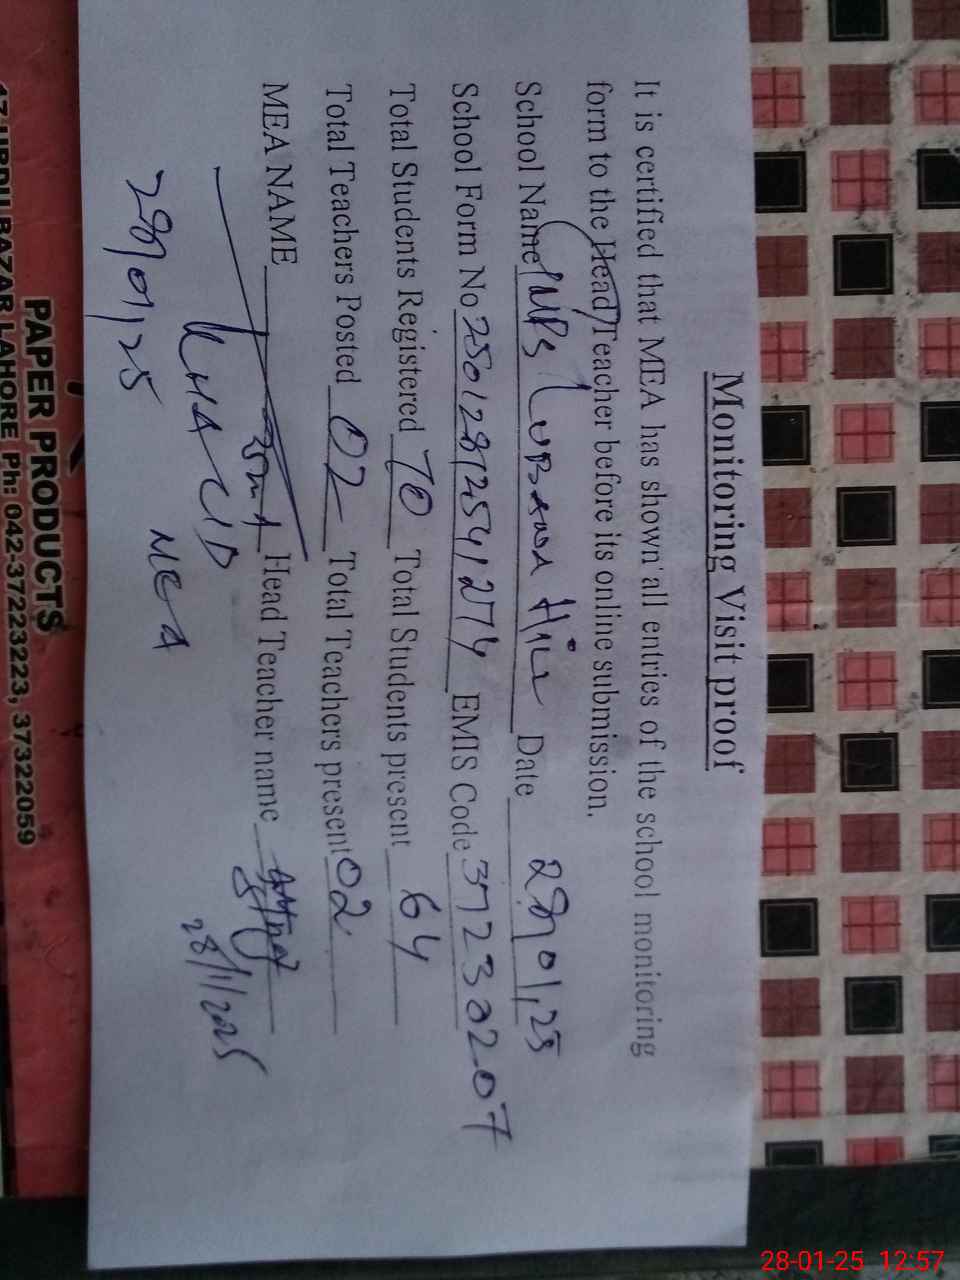 Monitoring Visit proof
It is certified that MEA has shown all entries of the school monitoring
form to the Head/Teacher before its online submission.
School Name GMPS Date 28/01/25
School Form No 25012812541274 EMIS Code 37230207
Total Students Registered 70 Total Students present 64
Total Teachers Posted 02 Total Teachers present 02
MEA NAME Head Teacher name
28/1/2025
MEA
28/01/25
PAPER PRODUCTS
17 URDU BAZAR LAHORE Ph: 042-37223223, 37322059
28-01-25 12:57